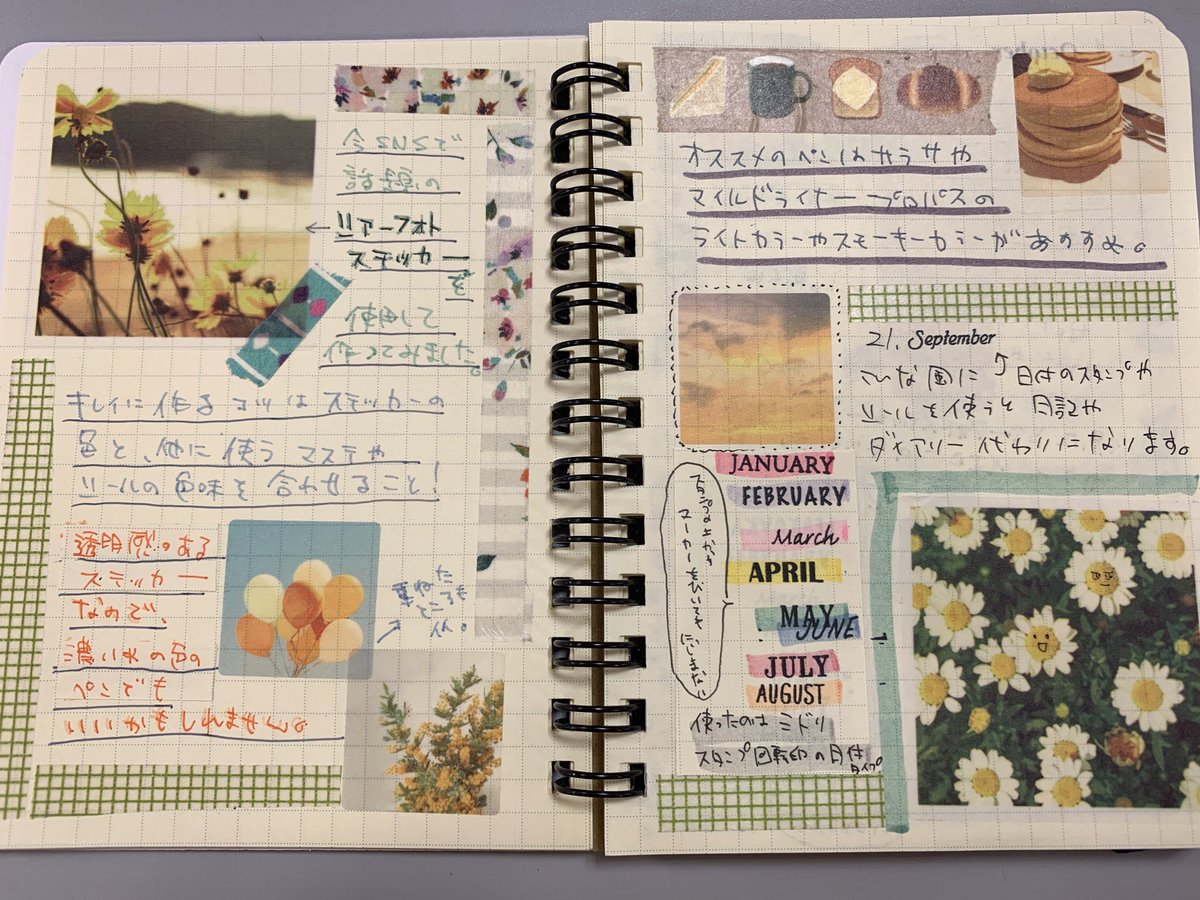 今SNSで
話題の
←リアーフォト
ステッカーを
使用して
作ってみました。
キレイに作るコツはステッカーの
色と、他に使うマステや
ツールの色味を合わせること！
透明感のある
ステッカー
なので、
濃いめの色の
ペンでも
いいかもしれません。
オススメのペンはサラサや
マイルドライナー プロパスの
ライトカラーやスモーキーカラーがおすすめ。
21. September
こんな風に ↑日付のスタンプや
ツールを使うと日記や
ダイアリー代わりになります。
JANUARY
FEBRUARY
March
APRIL
MAY
JUNE
JULY
AUGUST
スタンプの上から
マーカーをひいても
にじまない
使ったのはミドリ
スタンプ回転印の日付
タイプ